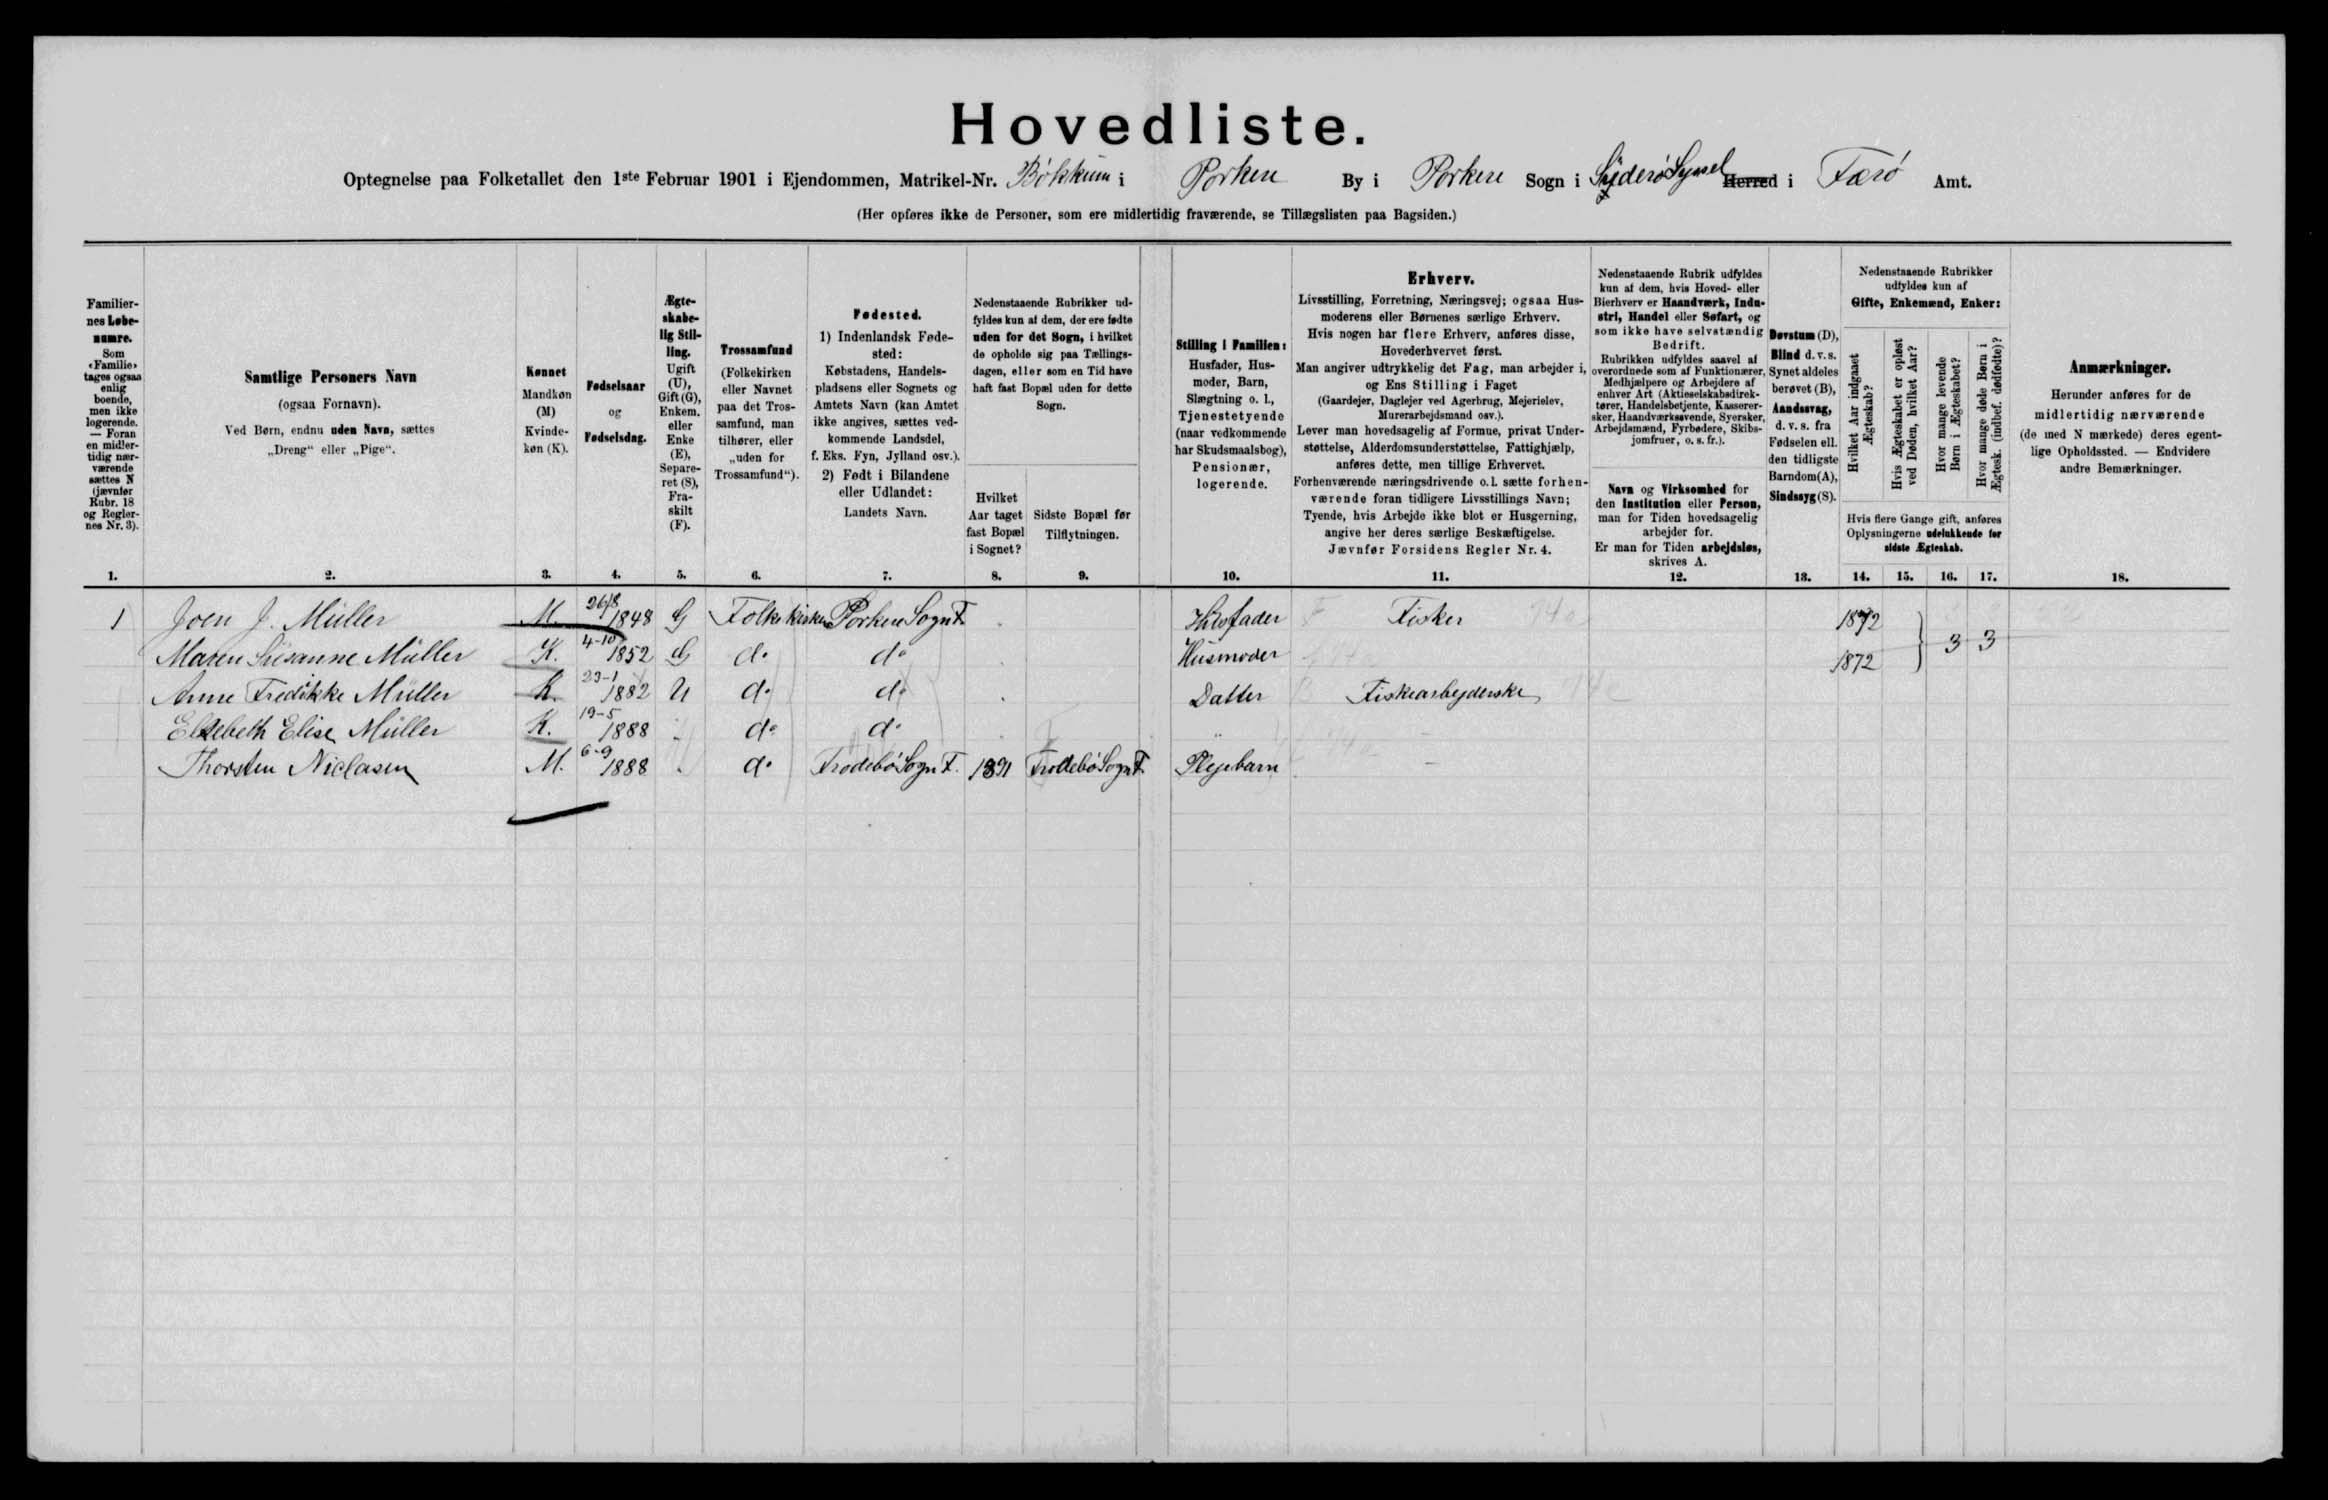 Hovedliste.
Optegnelse paa Folketallet den 1ste Februar 1901 i Ejendommen, Matrikel-Nr. Bökkum i Porkere By i Porkere Sogn i Syderø Syssel Herred i Færø Amt.
(Her opføres ikke de Personer, som ere midlertidig fraværende, se Tillægslisten paa Bagsiden.)
Familiernes Løbenumre.
Som «Familie» tages ogsaa enlig boende, men ikke logerende. — Foran en midlertidig nærværende sættes N (jævnfør Rubr. 18 og Reglernes Nr. 3).
Samtlige Personers Navn
(ogsaa Fornavn).
Ved Børn, endnu uden Navn, sættes
„Dreng“ eller „Pige“.
Kønnet
Mandkøn
(M)
Kvindekøn (K).
Fødselsaar
og
Fødselsdag.
Ægteskabelig Stilling.
Ugift (U), Gift (G), Enkem. eller Enke (E), Separeret (S), Fraskilt (F).
Trossamfund
(Folkekirken eller Navnet paa det Trossamfund, man tilhører, eller „uden for Trossamfund“).
Fødested.
1) Indenlandsk Fødested:
Købstadens, Handelspladsens eller Sognets og Amtets Navn (kan Amtet ikke angives, sættes vedkommende Landsdel, f. Eks. Fyn, Jylland osv.).
2) Født i Bilandene eller Udlandet:
Landets Navn.
Nedenstaaende Rubrikker udfyldes kun af dem, der ere fødte uden for det Sogn, i hvilket de opholde sig paa Tællingsdagen, eller som en Tid have haft fast Bopæl uden for dette Sogn.
Hvilket Aar taget fast Bopæl i Sognet?
Sidste Bopæl før Tilflytningen.
Stilling i Familien:
Husfader, Husmoder, Barn, Slægtning o. l., Tjenestetyende (naar vedkommende har Skudsmaalsbog), Pensionær, logerende.
Erhverv.
Livsstilling, Forretning, Næringsvej; ogsaa Husmoderens eller Børnenes særlige Erhverv.
Hvis nogen har flere Erhverv, anføres disse, Hovederhvervet først.
Man angiver udtrykkelig det Fag, man arbejder i, og Ens Stilling i Faget
(Gaardejer, Daglejer ved Agerbrug, Mejerielev, Murerarbejdsmand osv.).
Lever man hovedsagelig af Formue, privat Understøttelse, Alderdomsunderstøttelse, Fattighjælp, anføres dette, men tillige Erhvervet.
Forhenværende næringsdrivende o. l. sætte forhenværende foran tidligere Livsstillings Navn;
Tyende, hvis Arbejde ikke blot er Husgerning, angive her deres særlige Beskæftigelse.
Jævnfør Forsidens Regler Nr. 4.
Nedenstaaende Rubrik udfyldes kun af dem, hvis Hoved- eller Bierhverv er Haandværk, Industri, Handel eller Søfart, og som ikke have selvstændig Bedrift.
Rubrikken udfyldes saavel af overordnede som af Funktionærer, Medhjælpere og Arbejdere af enhver Art (Aktieselskabsdirektører, Handelsbetjente, Kasserersker, Haandværkssvende, Syersker, Arbejdsmænd, Fyrbødere, Skibsjomfruer, o. s. fr.).
Navn og Virksomhed for den Institution eller Person, man for Tiden hovedsagelig arbejder for.
Er man for Tiden arbejdsløs, skrives A.
Døvstum (D), Blind d. v. s. Synet aldeles berøvet (B), Aandssvag, d. v. s. fra Fødselen ell. den tidligste Barndom (A), Sindssyg (S).
Nedenstaaende Rubrikker udfyldes kun af
Gifte, Enkemænd, Enker:
Hvilket Aar indgaaet Ægteskab?
Hvis Ægteskabet er opløst ved Døden, hvilket Aar?
Hvor mange levende Børn i Ægteskabet?
Hvor mange døde Børn i Ægtesk. (indbef. dødfødte)?
Hvis flere Gange gift, anføres Oplysningerne udelukkende for sidste Ægteskab.
Anmærkninger.
Herunder anføres for de midlertidig nærværende (de med N mærkede) deres egentlige Opholdssted. — Endvidere andre Bemærkninger.
1. 2. 3. 4. 5. 6. 7. 8. 9. 10. 11. 12. 13. 14. 15. 16. 17. 18.
1 Joen J. Müller M. 26/8 1848 G Folkekirken Porkere Sogn F. Husfader Fisker 1872
Maren Susanne Müller K. 4-10 1852 G do do Husmoder 1872 3 3
Anne Fredikke Müller K. 23-1 1882 U do do Datter Fiskearbejderske
Elsebeth Elise Müller K. 19-5 1888 " do do "
Thorsten Niclasen M. 6-9 1888 " do Frodebö Sogn F. 1891 Frodebö Sogn F. Plejebarn